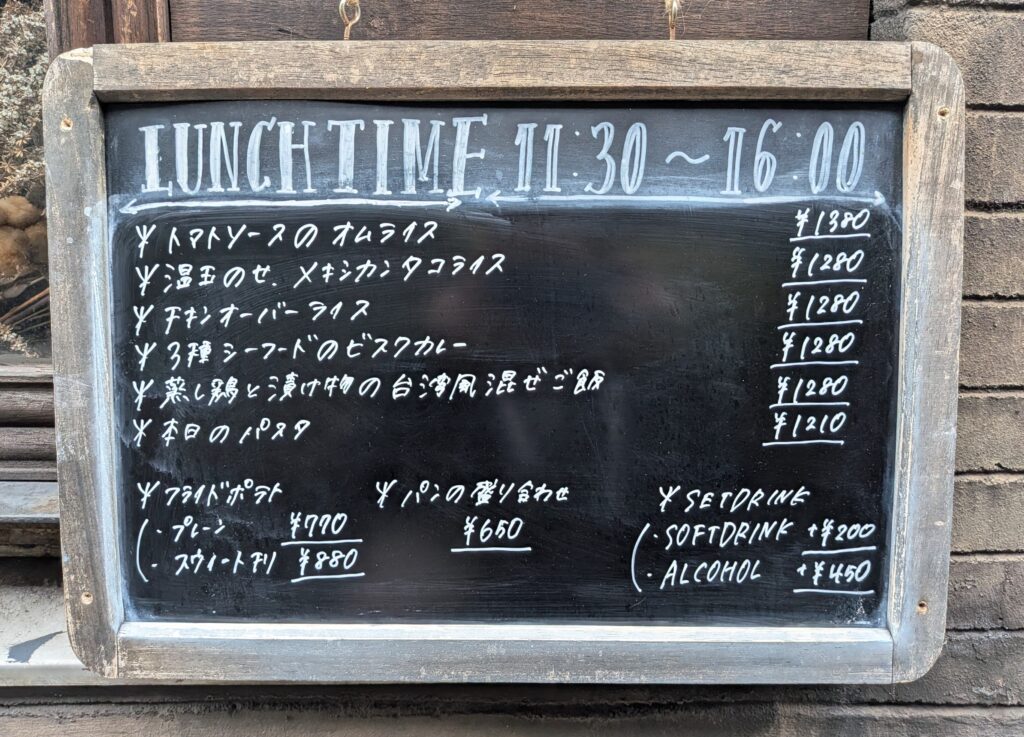 LUNCHTIME 11:30〜16:00
¥ トマトソースの オムライス ¥1380
¥ 温玉のせ. メキシカンタコライス ¥1280
¥ チキンオーバーライス ¥1280
¥ 3種シーフードのビスクカレー ¥1280
¥ 蒸し鶏と漬け物の台湾風混ぜご飯 ¥1280
¥ 本日のパスタ ¥1210
¥ フライドポテト
・プレーン ¥770
・スウィートチリ ¥880
¥ パンの盛り合わせ
¥650
¥ SETDRINK
・SOFTDRINK +¥200
・ALCOHOL +¥450